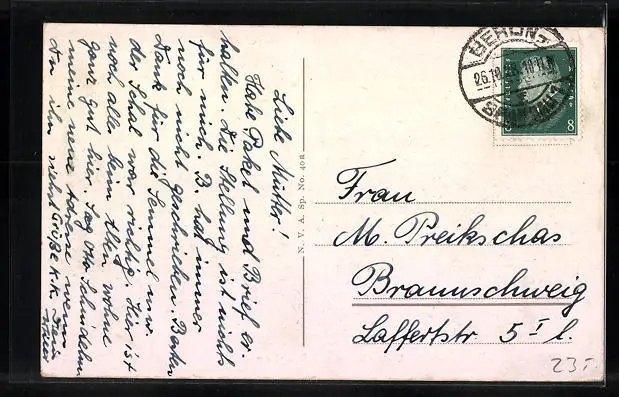 Liebe Mutter!
Habe Paket und Brief er-
halten. Die Stellung ist nichts
für mich. B. hat immer
noch nicht geschrieben. Vielen
Dank für die Semmel usw.
der Schal war richtig. Hier ist
noch alles beim alten. wohne
ganz gut hier. Sag Otto
meine neue Adresse wenn
Du ihn siehst Grüße
N. V. A. Sp. No. 40a
BERLIN
26.10.
8
Frau
M. Preikschas
Braunschweig
Laffertstr 5 I l.
23.-